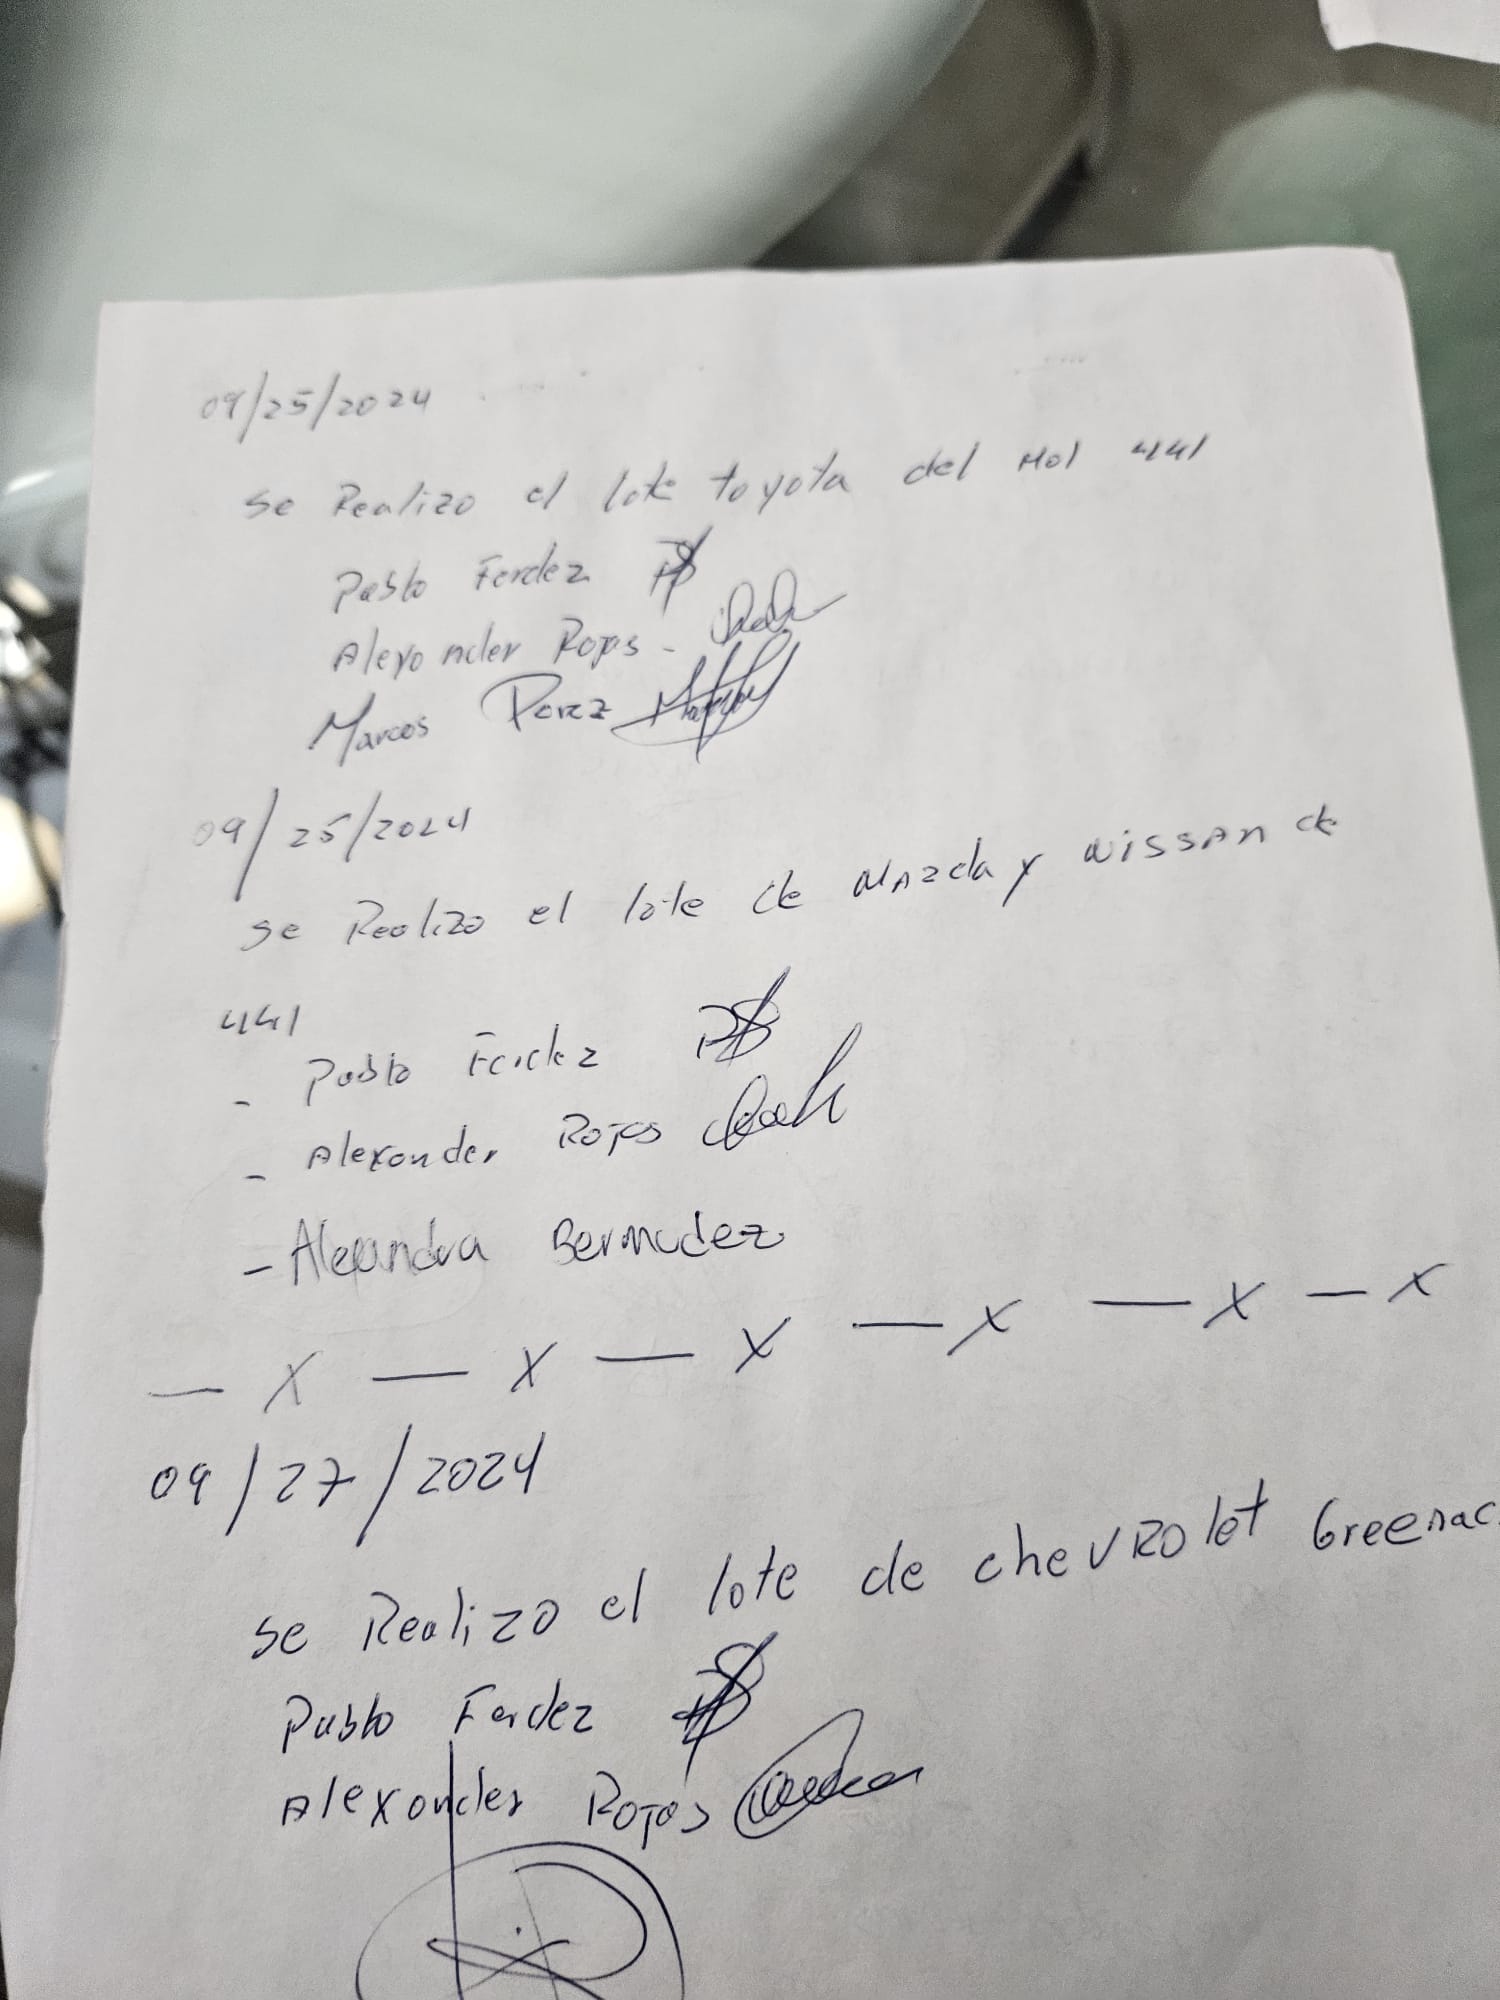 09/25/2024
se Realizo el lote toyota del Mol 441
Pablo Ferdez
Alexander Rojas -
Marcos Perez
09/25/2024
se Realizo el lote de Mazda y Nissan de
441
- Pablo Ferdez
- Alexander Rojas
- Alejandra Bermudez
— X — X — X — X — X — X
09/27/2024
se Realizo el lote de chevrolet Greenac
Pablo Ferdez
Alexander Rojas